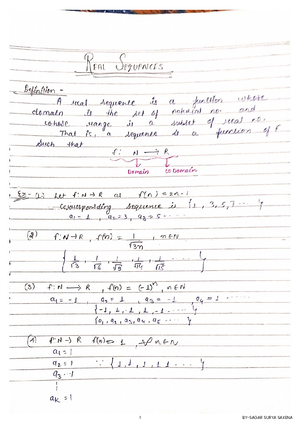 REAL SEQUENCES
Definition -
A real sequence is a function whose
domain is the set of natural no. and
whose range is a subset of real no.
That is, a sequence is a function of F
such that
f: N → R
Domain Co Domain
Ex:- (1) Let f: N → R as f(n) = 2n-1
Corresponding sequence is {1, 3, 5, 7 ...... }
a₁ = 1, a₂ = 3, a₃ = 5 ......
(2) f: N → R, f(n) = 1/√3n, n ∈ N
{ 1/√3, 1/√6, 1/√9, 1/√12, 1/√15 ...... }
(3) f: N → R, f(n) = (-1)ⁿ, n ∈ N
a₁ = -1, a₂ = 1, a₃ = -1 a₄ = 1 ......
{-1, 1, -1, 1, -1 ...... }
{a₁, a₂, a₃, a₄, a₅ ...... }
(4) f: N → R f(n) = 1, n ∈ N
a₁ = 1
a₂ = 1 ∵ {1, 1, 1, 1 ...... }
a₃ = 1
⋮
aₖ = 1
1
BY-SAGAR SURYA SAXENA